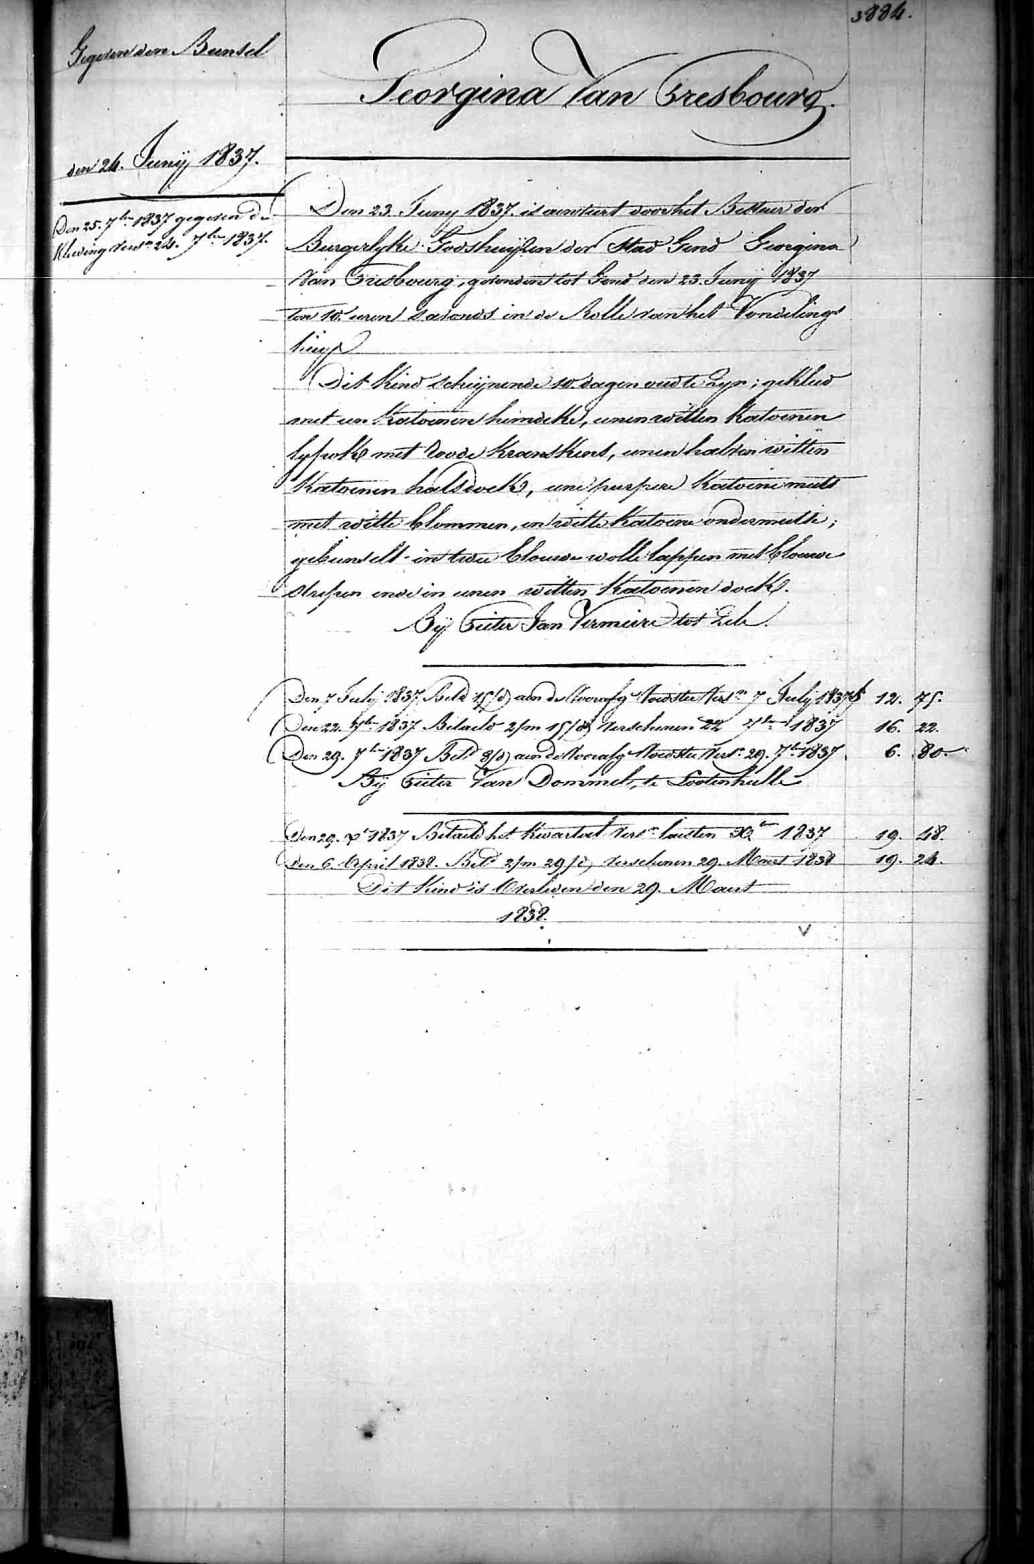 3884.
Gegeven den Bunsel
den 24. Junij 1837.
Den 25. 7ber 1837 gegeven de
Kleeding versn 24. 7ber 1837.
Georgina Van Presbourg.
Den 23. Juny 1837. is aenveert door het Bestuer der
Burgerlyke Godshuijsen der Stad Gend Georgina
Van Presbourg, gevonden tot Gend den 23. Junij 1837
ten 10. uren s'avonds in de Rolle van het Vondelings
huys
Dit Kind schijnende 10. dagen oud te zyn; gekleed
met een Katoenen hemdeke, eenen witten Katoenen
lyfrok met roode Kranskens, eenen halven witten
Katoenen halsdoek, eene purpere Katoene muts
met witte blommen, en witte Katoene ondermuts;
gebunselt in twee blouwe wolle lappen met blouwe
strepen ende in eenen witten Katoenen doek.
Bij Pieter Jan Vermeire tot Zele.
Den 7 July 1837 Beld 15/d aen de Voorafg Voedster Versn 7 July 1837 12. 75.
Den 22. 7ber 1837 Betaeld 2/m 15/d Verschenen 22 7ber 1837 16. 22.
Den 29. 7ber 1837 Beld 8/d aen de Voorafg Voedster Versn 29. 7ber 1837. 6. 80.
Bij Pieter Van Dommele, te Lootenhulle
Den 29. Xr 1837 Betaeld het Kwartael Versn laesten Xber 1837 19. 48.
Den 6. April 1838. Beld 2/m 29/d Verschenen 29. Maert 1838 19. 24.
Dit Kind is Overleden den 29. Maert
1838.